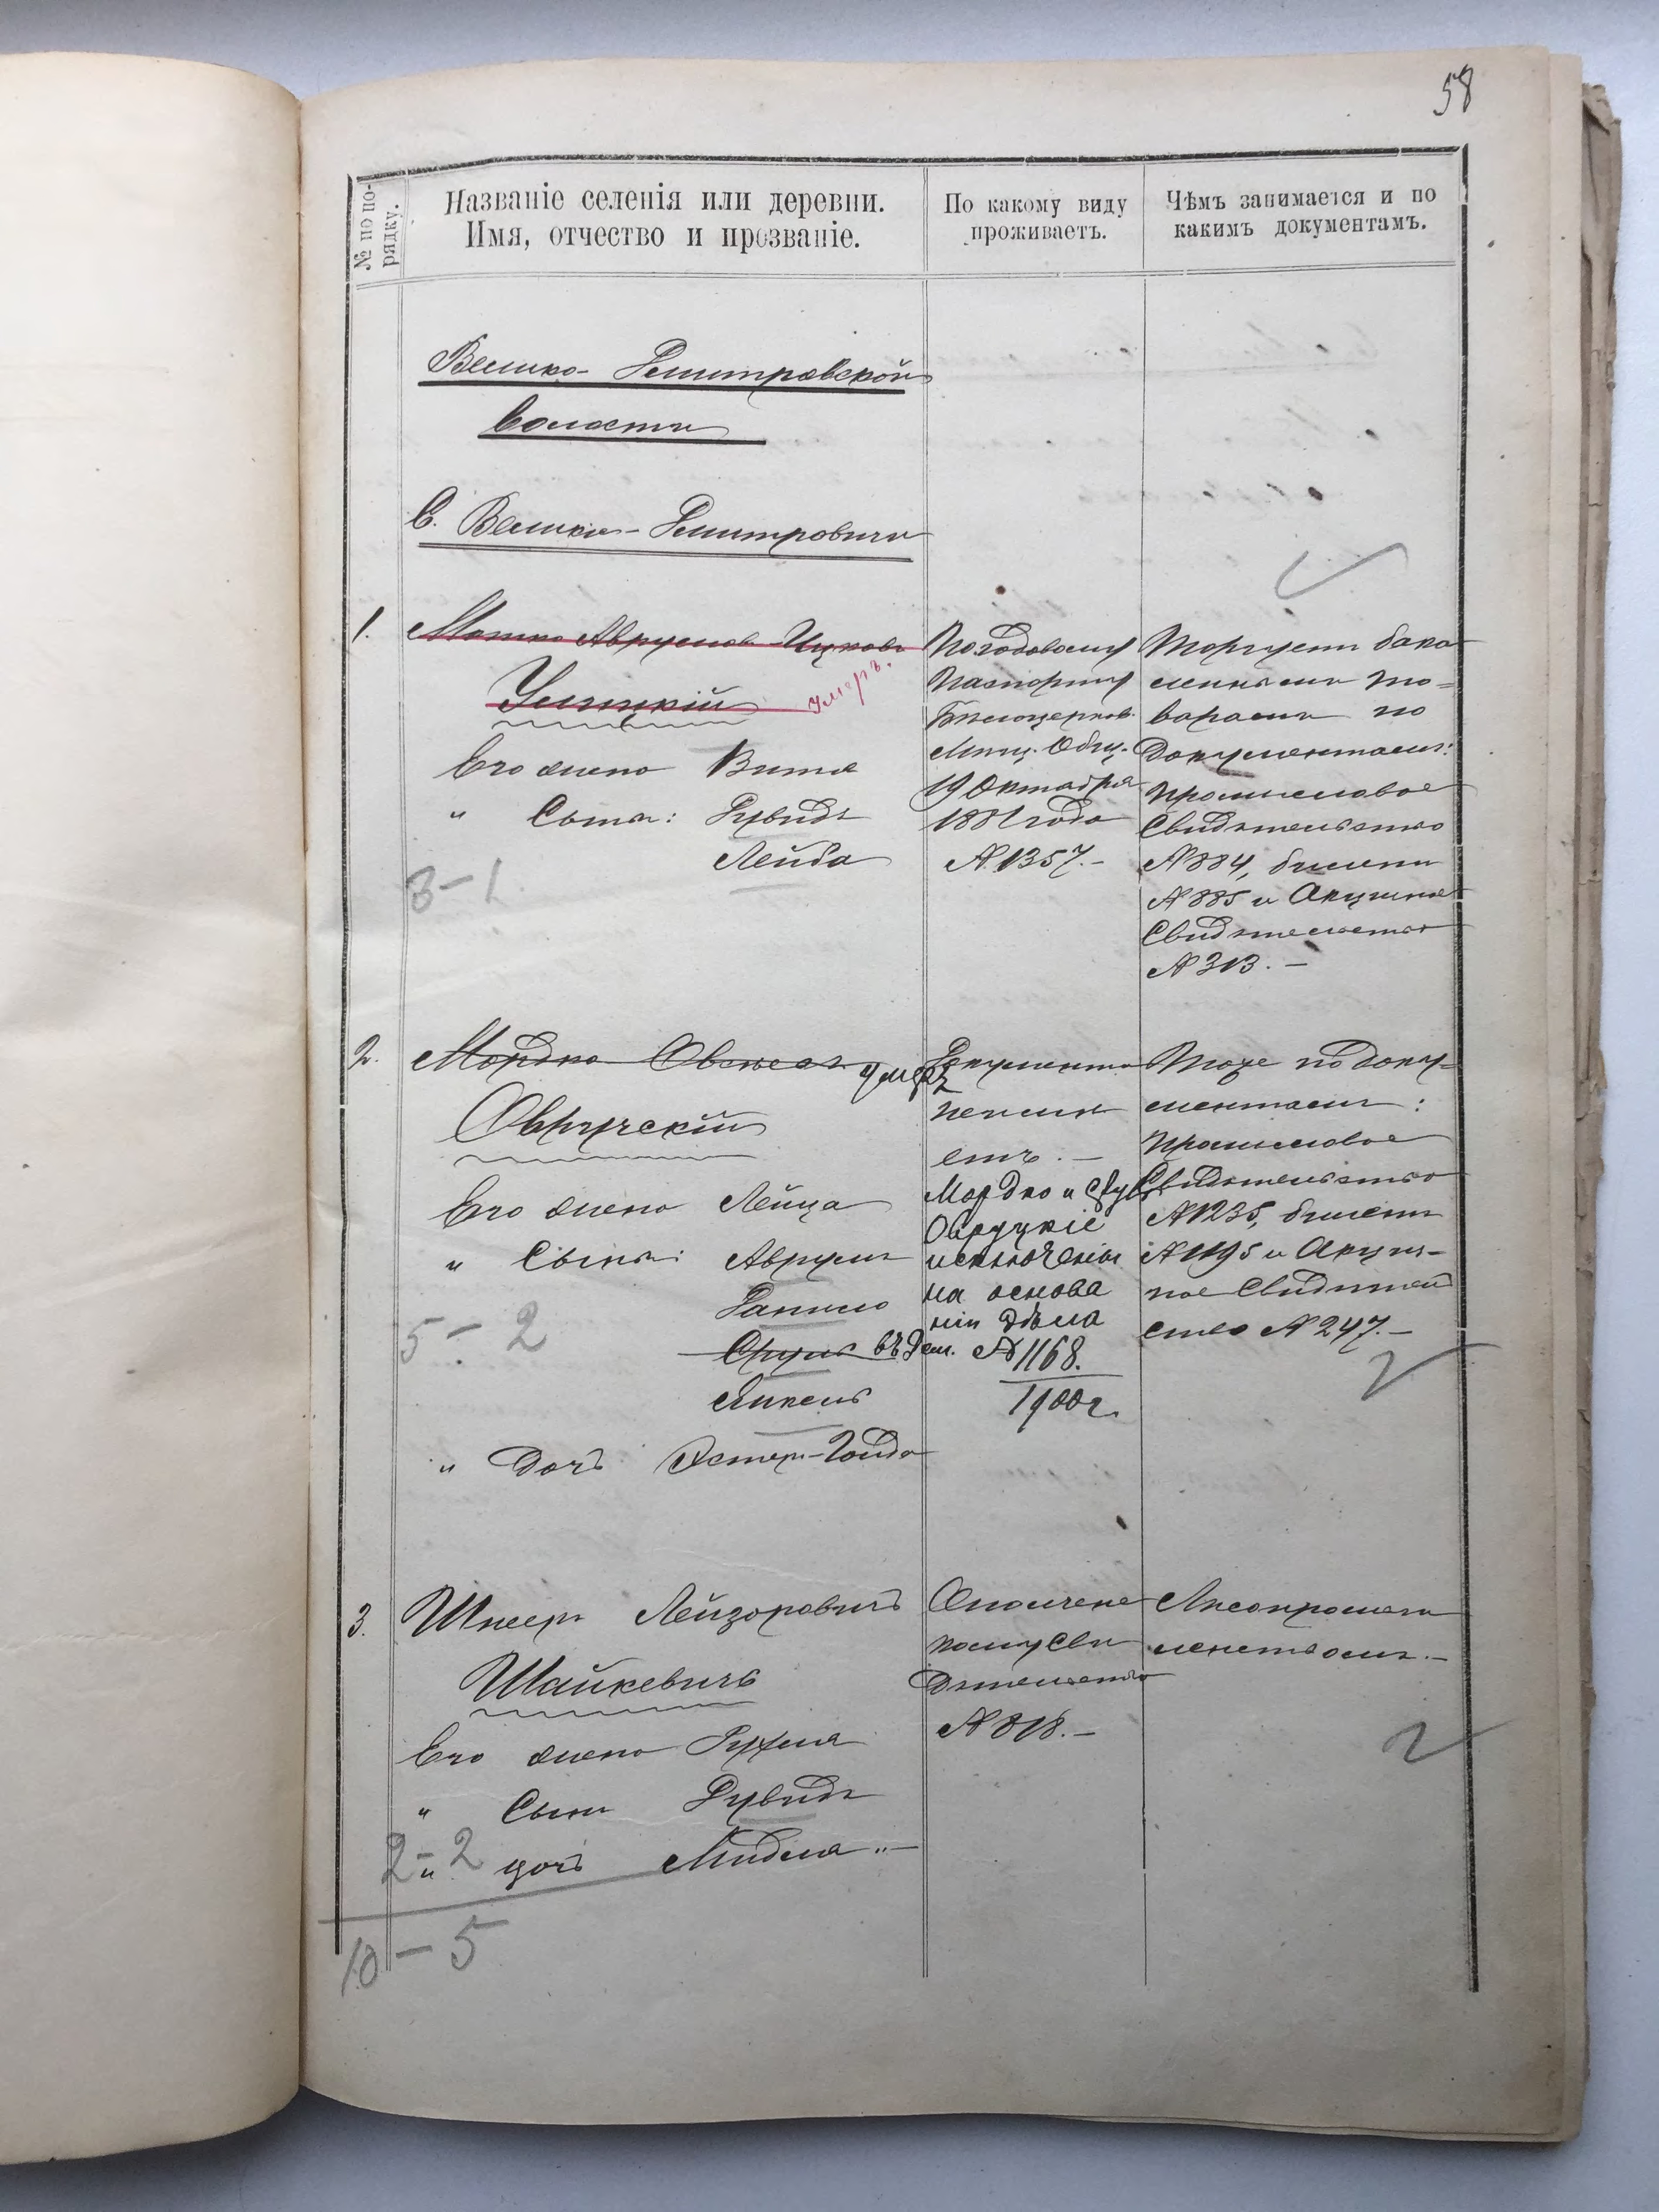 58
№ по по-
рядку.
Названіе селенія или деревни.
Имя, отчество и прозваніе.
По какому виду
проживаетъ.
Чѣмъ занимается и по
какимъ документамъ.
Велико-Дмитровской
волости
С. Велико-Дмитровичи
1.
Мошко Аврумов Ицковъ
Умеръ.
Его жена Витя
" Сыны: Дувидъ
Лейба
3-1
Погодовому
Паспорту
Бѣлоцерков.
Мѣщ. Общ.
19 Октября
1881 года
№ 1357.-
Торгуетъ бака
лейными то=
варами по
документамъ:
Промысловое
Свидѣтельство
№ 884, билетъ
№ 885 и Акцизное
Свидѣтельство
№ 313.-
2.
Мордко Овсѣевъ умеръ
Овручскій
Его жена Лейца
" Сыны: Аврумъ
Данило
Сруль въ Дем.
Янкель
" Дочь Эстер-Гольда
5-2
Документа
не имѣ
етъ.-
Мордко и Сруль
Овруцкіе
исключены
на основа
ніи дѣла
№ 1168.
1900г.
Тоже по доку=
ментамъ:
Промысловое
Свидѣтельство
№ 1235, билетъ
№ 1195 и Акциз-
ное Свидѣтель
ство № 247.-
3.
Шнеер Лейзоровичъ
Шайкевичъ
Его жена Рухля
" Сынъ Дувидъ
" дочь Миндля "-
2-2
10-5
Ополчене
кому Сви
дѣтельство
№ 818.-
Лѣсопромыш
ленствомъ.-